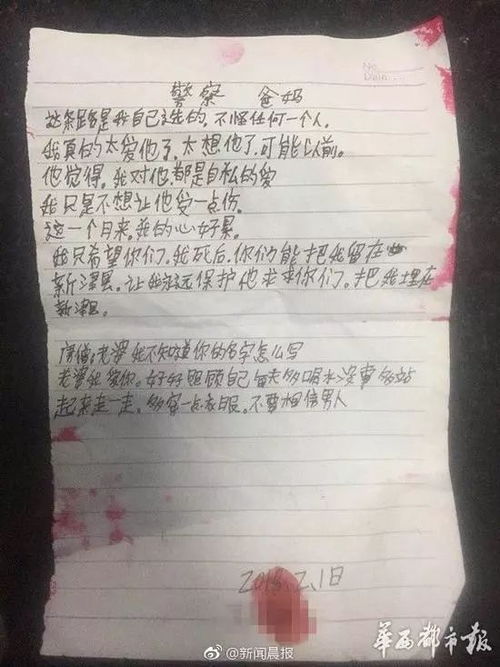 No.
Date.
警察 爸妈
这条路是我自己选的，不怪任何一个人，
我真的太爱他了，太想他了，可能以前。
他觉得，我对他都是自私的爱
我只是不想让他受一点伤，
这一个月来，我的心好累，
我只希望你们，我死后，你们能把我留在
新津县，让我永远保护他求求你们，把我埋在
新津县。
老婆我不知道你的名字怎么写
老婆我爱你，好好照顾自己每天多喝水没事多站
起来走一走，多穿一点衣服，不要相信男人
2018.2.1日
@新闻晨报
华西都市报